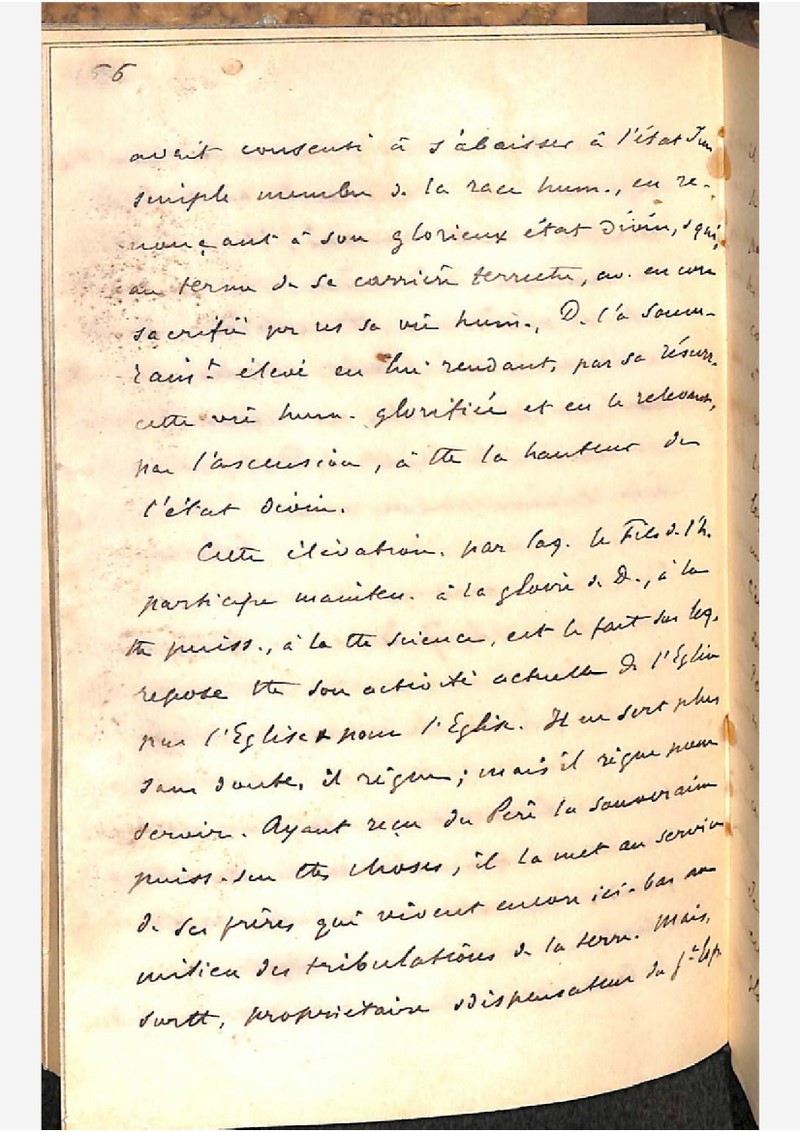 56
avait consenti à s'abaisser à l'état d'un
simple membre d. la race hum., en re-
nonçant à son glorieux état divin, & qui,
au terme de sa carrière terrestre, av. encore
sacrifié pr ns sa vie hum., D. l'a souve-
raint élevé en lui rendant, par sa résurr.
cette vie hum. glorifiée et en le relevant,
par l'ascension, à tte la hauteur de
l'état divin.
Cette élévation. par laq. le Fils d. l'h.
participe mainten. à la gloire d. D., à la
tte puiss., à la tte science, est le fait sur leq.
repose tte son activité actuelle de l'Eglise
par l'Eglise & pour l'Eglise. Il ne sert plus
sans doute, il règne; mais il règne pour
servir. Ayant reçu du Père la souveraine
puiss. sur ttes choses, il la met au service
d. ses frères qui vivent encore ici-bas au
milieu des tribulations de la terre. Mais,
surtt, propriétaire & dispensateur du